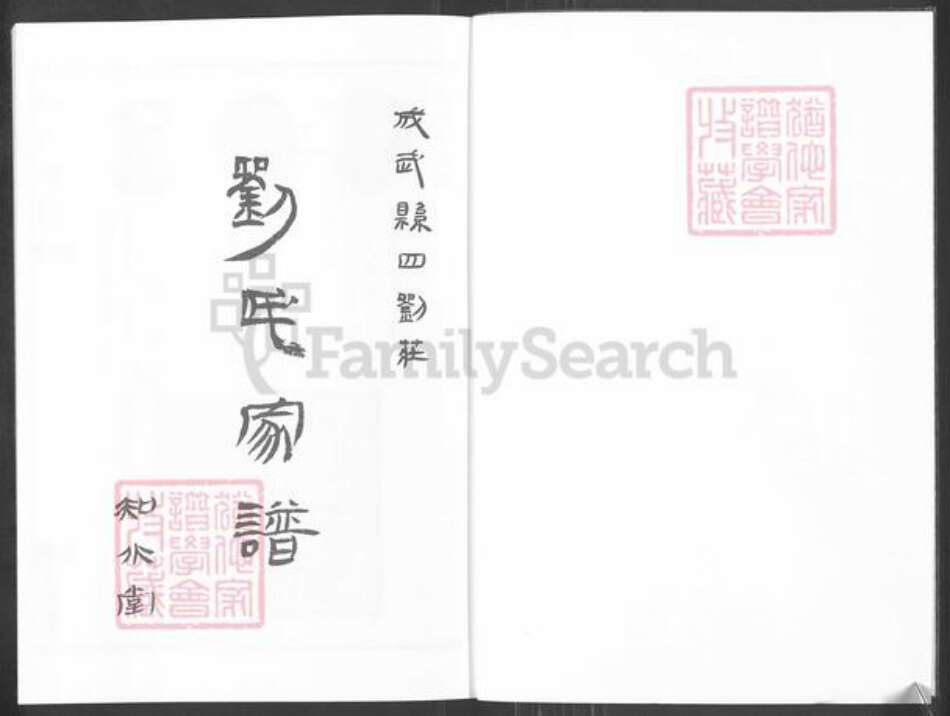 成武縣四劉莊
劉氏家譜
知水堂
猶他家
譜學會
收藏
猶他家
譜學會
收藏
FamilySearch